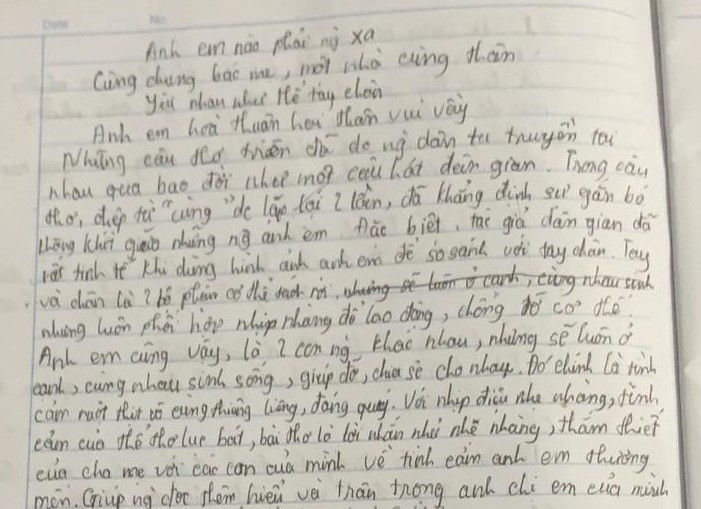 Date No.
Anh em nào phải ng xa
Cùng chung bác mẹ, một nhà cùng thân
Yêu nhau như thể tay chân
Anh em hoà thuận hai thân vui vầy
Những câu thơ trên đã dc ng dân ta truyền tai
nhau qua bao đời như một câu hát dân gian. Trong câu
thơ, điệp từ "cùng" dc lặp lại 2 lần, đã khẳng định sự gắn bó
khăng khít giữa những ng anh em. Đặc biệt, tác giả dân gian đã
rất tinh tế khi dùng hình ảnh anh em để so sánh với tay chân. Tay
và chân là 2 bộ phận cơ thể tách rời, nhưng sẽ luôn ở cạnh, cùng nhau sinh
nhưng luôn phối hợp nhịp nhàng để lao động, chống đỡ cơ thể.
Anh em cũng vậy, là 2 con ng khác nhau, nhưng sẽ luôn ở
cạnh, cùng nhau sinh sống, giúp đỡ, chia sẻ cho nhau. Đó chính là tình
cảm ruột thịt vô cùng thiêng liêng, đáng quý. Với nhịp điệu nhẹ nhàng, tình
cảm của thể thơ lục bát, bài thơ là lời nhắn nhủ nhẹ nhàng, thắm thiết
của cha mẹ với các con của mình về tình cảm anh em thương
mến. Giúp ng đọc thêm hiểu và trân trọng anh chị em của mình